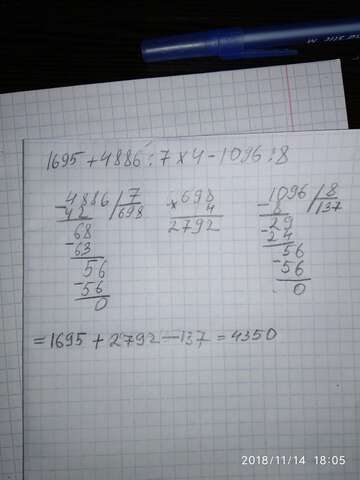 1695 + 4886 : 7 × 4 - 1096 : 8
- 4886 / 7
42 / 698
- 68
63
56
- 56
0
× 698
4
2792
- 1096 / 8
8 / 137
- 29
24
56
- 56
0
= 1695 + 2792 - 137 = 4350
2018/11/14 18:05